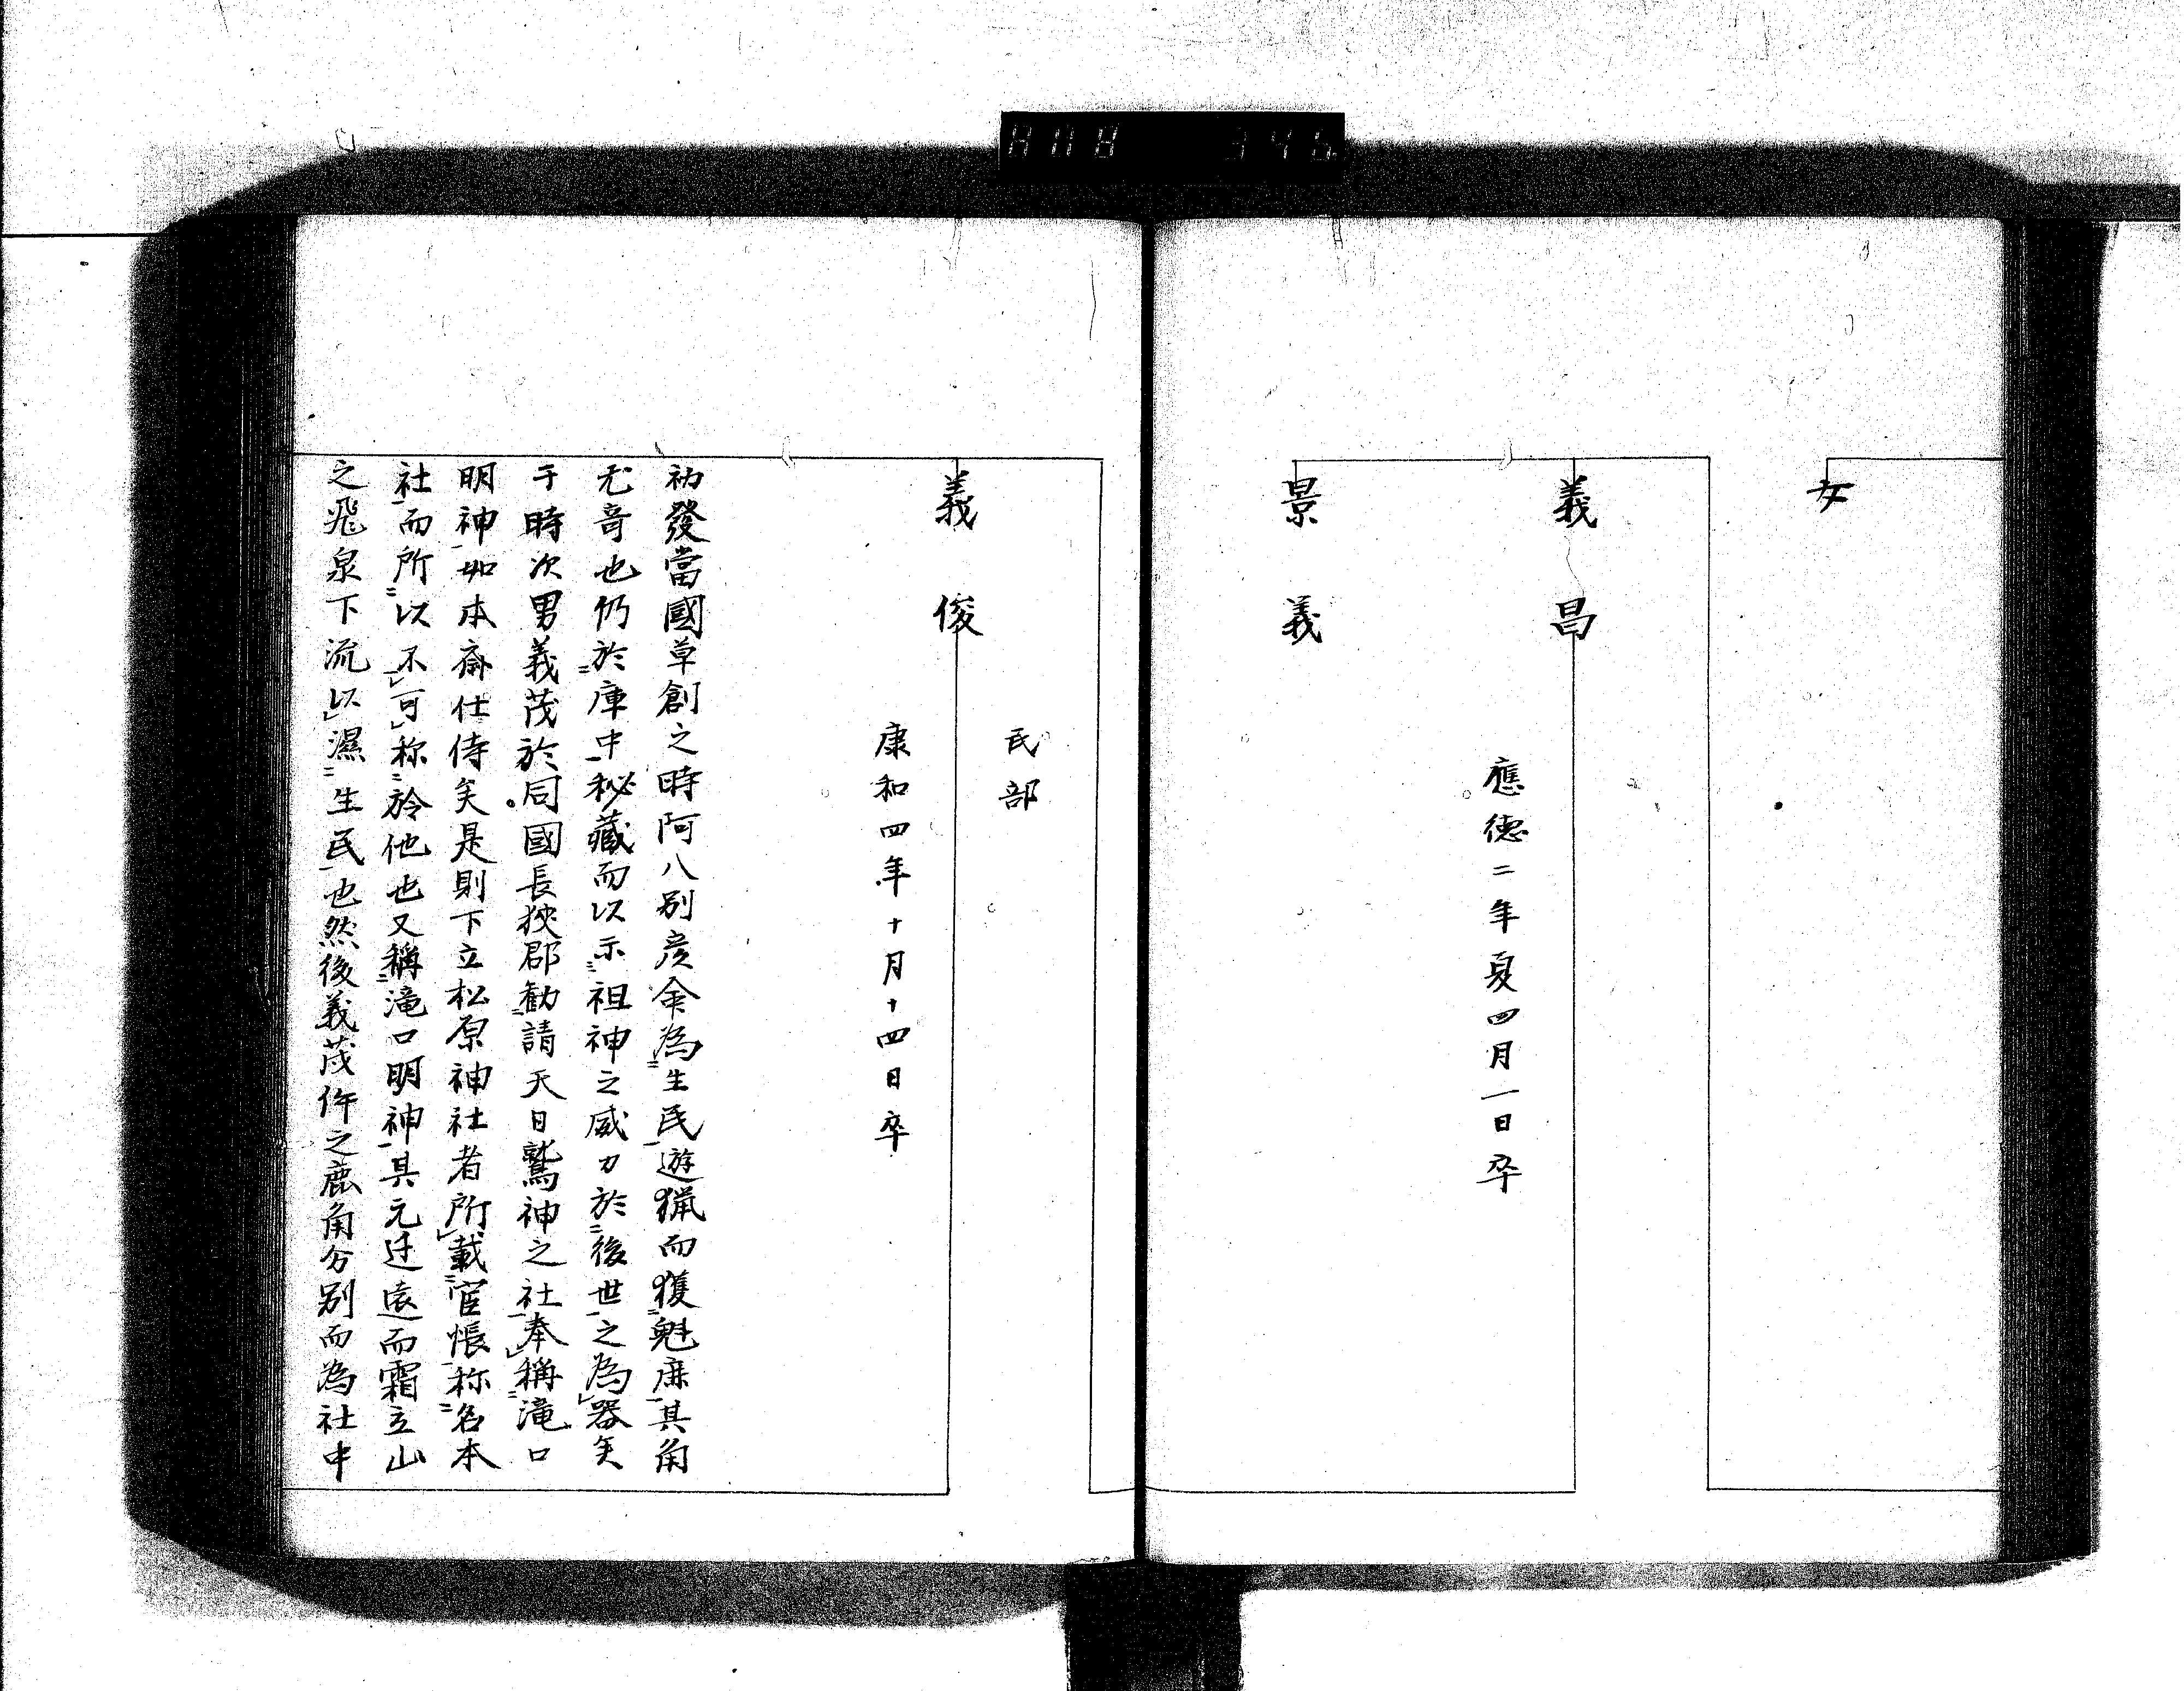 女
義昌
應德二年夏四月一日卒
景義
民部
義俊
康和四年十月十四日卒
初發當國草創之時阿八別彦命為生民遊猟而獲魁鹿其角
尤奇也仍於庫中秘藏而以示祖神之威力於後世之為器矣
于時次男義茂於同國長狹郡勧請天日鷲神之社奉稱滝口
明神如本斎仕侍矣是則下立松原神社者所載官帳称名本
社而所以不可称於他也又稱滝口明神具元迁遠而霜立山
之飛泉下流以濕生民也然後義茂件之鹿角分別而為社中